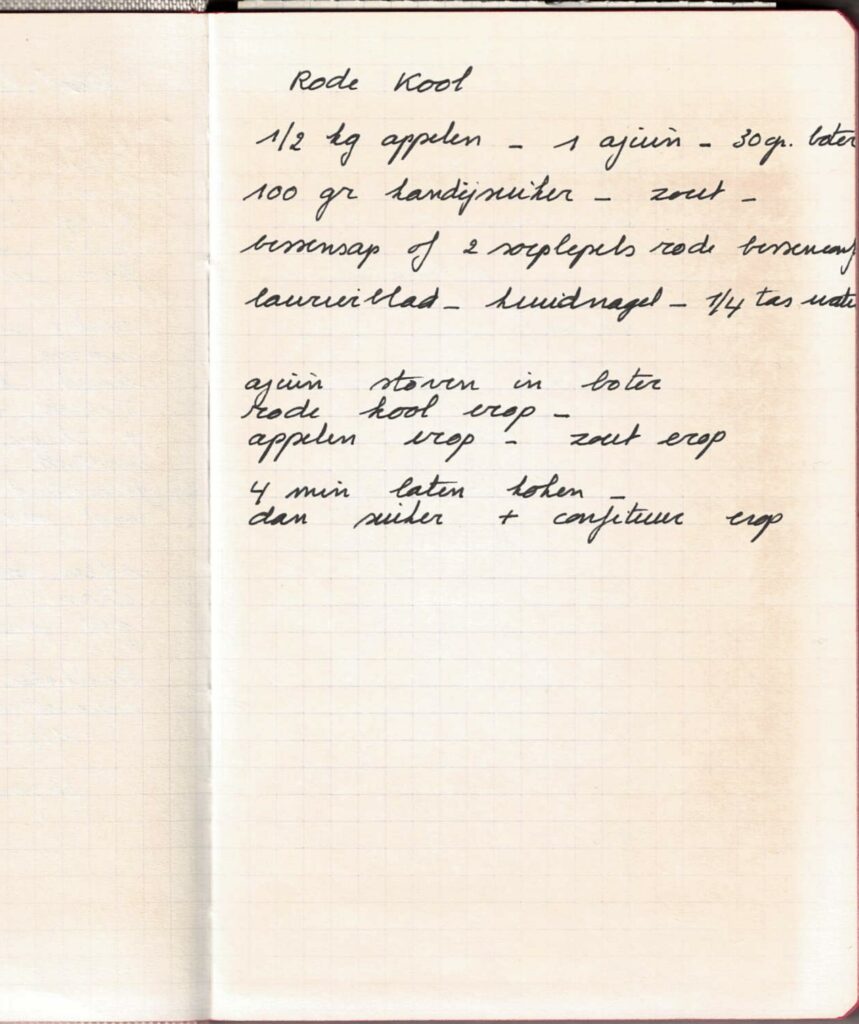 Rode Kool
1/2 kg appelen - 1 ajuin - 30 gr. boter
100 gr kandijsuiker - zout -
bessensap of 2 soeplepels rode bessenconf
laurierblad - kruidnagel - 1/4 tas wate
ajuin stoven in boter
rode kool erop -
appelen erop - zout erop
4 min laten koken -
dan suiker + confituur erop